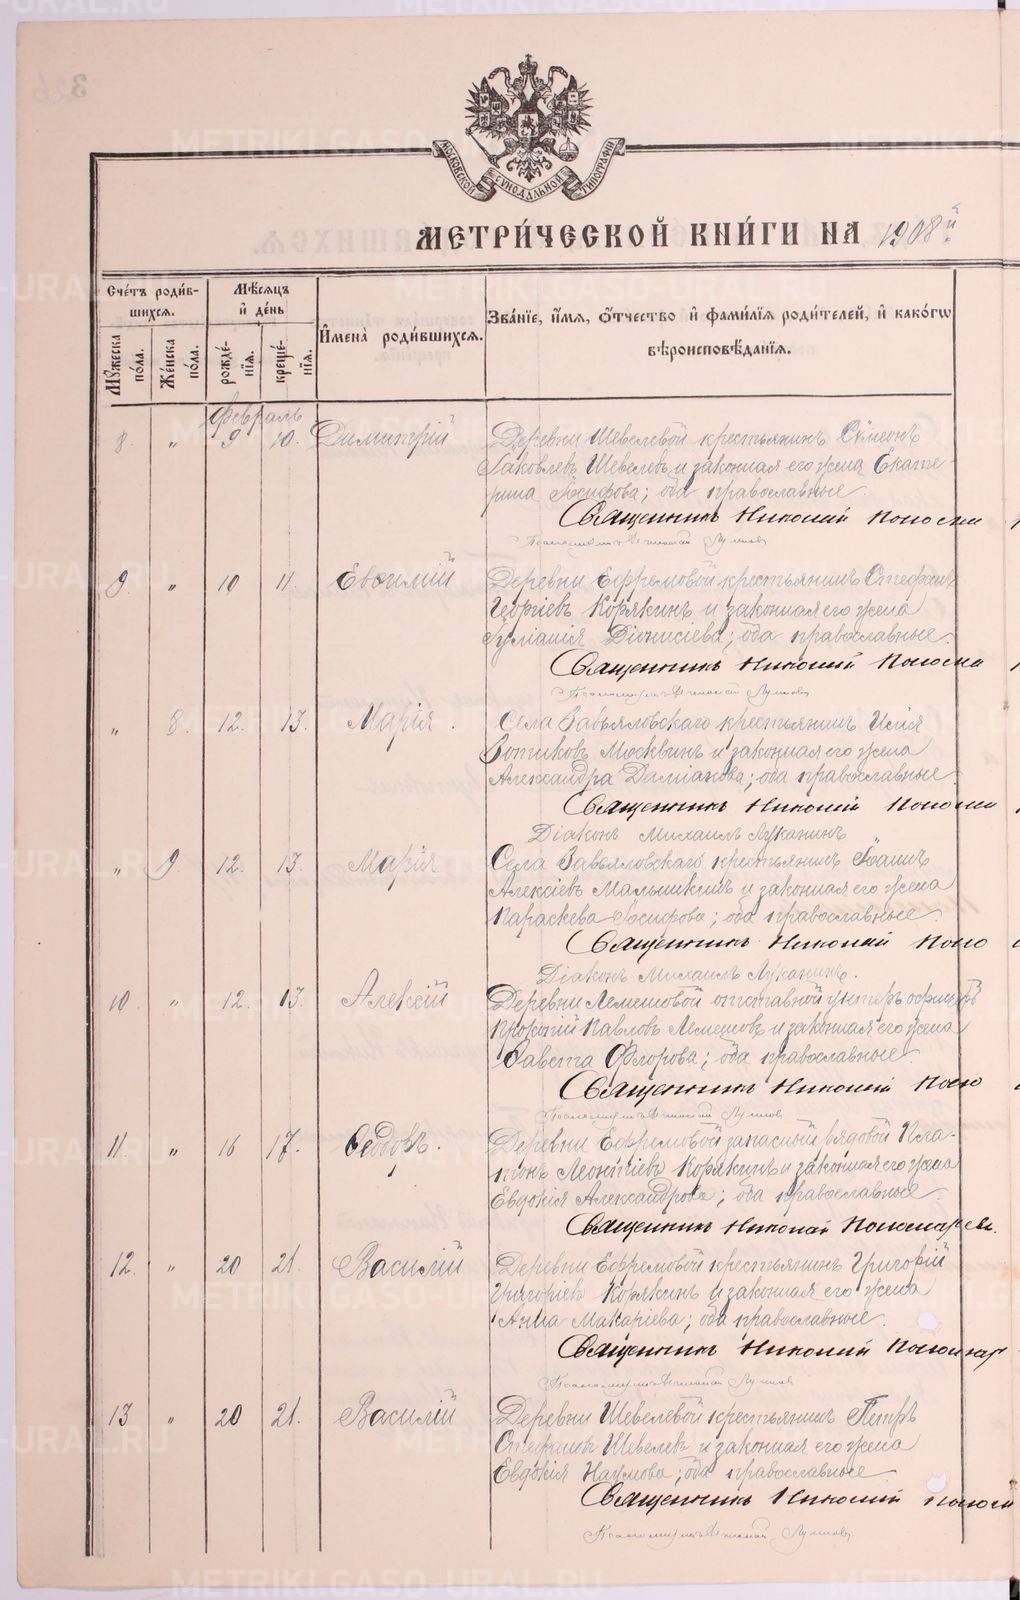 МОСКОВСКОЙ СУНОДАЛЬНОЙ ТИПОГРАФІИ
МЕТРИ́ЧЕСКОЙ КНИ́ГИ НА 1908й
Сче́тъ роди́в-
шихсѧ.
Мꙋ́жеска по́ла.
Же́нска по́ла.
Мѣ́сѧцъ
и҆ де́нь
рожде́-
нїѧ.
креще́-
нїѧ.
И҆мена̀ роди́вшихсѧ.
Зва́нїе, и҆́мѧ, ѻ҆́тчество и҆ фами́лїѧ роди́телей, и҆ како́гѡ
вѣроисповѣ́данїѧ.
Февраль
8. „ 9 10. Димитрій
Деревни Шевелевой крестьянинъ Сѵмеонъ
Іаковлевъ Шевелевъ и законная его жена Екате-
рина Іосифова; оба православные.
Священникъ Николай
9. „ 10 11. Евѳимій
Деревни Ефремовой крестьянинъ Стефанъ
Георгіевъ Корякинъ и законная его жена
Іуліанія Діонисіева; оба православные.
Священникъ Николай
„ 8. 12. 13. Марія.
Села Завьяловскаго крестьянинъ Илія
Москвинъ и законная его жена
Александра Даміанова; оба православные.
Священникъ Николай
Діаконъ Михаилъ Луканинъ
„ 9 12. 13. Марія
Села Завьяловскаго крестьянинъ Іоаннъ
Алексіевъ Малышкинъ и законная его жена
Параскева Іосифова; оба православные.
Священникъ Николай Поно
Діаконъ Михаилъ Луканинъ.
10. „ 12. 13. Алексій
Деревни Лемешовой отставной унтеръ офицеръ
Прокопій Павловъ Лемешовъ и законная его жена
Савета Флорова; оба православные.
Священникъ Николай Поно
11 „ 16 17. Ѳеодоръ.
Деревни Ефремовой запасный рядовой Пла-
тонъ Леонтіевъ Корякинъ и законная его жена
Евдокія Александрова; оба православные.
Священникъ Николай Пономаревъ.
12. „ 20 21. Василій
Деревни Ефремовой крестьянинъ Григорій
Григоріевъ Корякинъ и законная его жена
Анна Макаріева; оба православные.
Священникъ Николай Пономар
13 „ 20 21. Василій
Деревни Шевелевой крестьянинъ Петръ
Стефановъ Шевелевъ и законная его жена
Евдокія Наумова; оба православные.
Священникъ Николай
METRIKI.GASO-URAL.RU